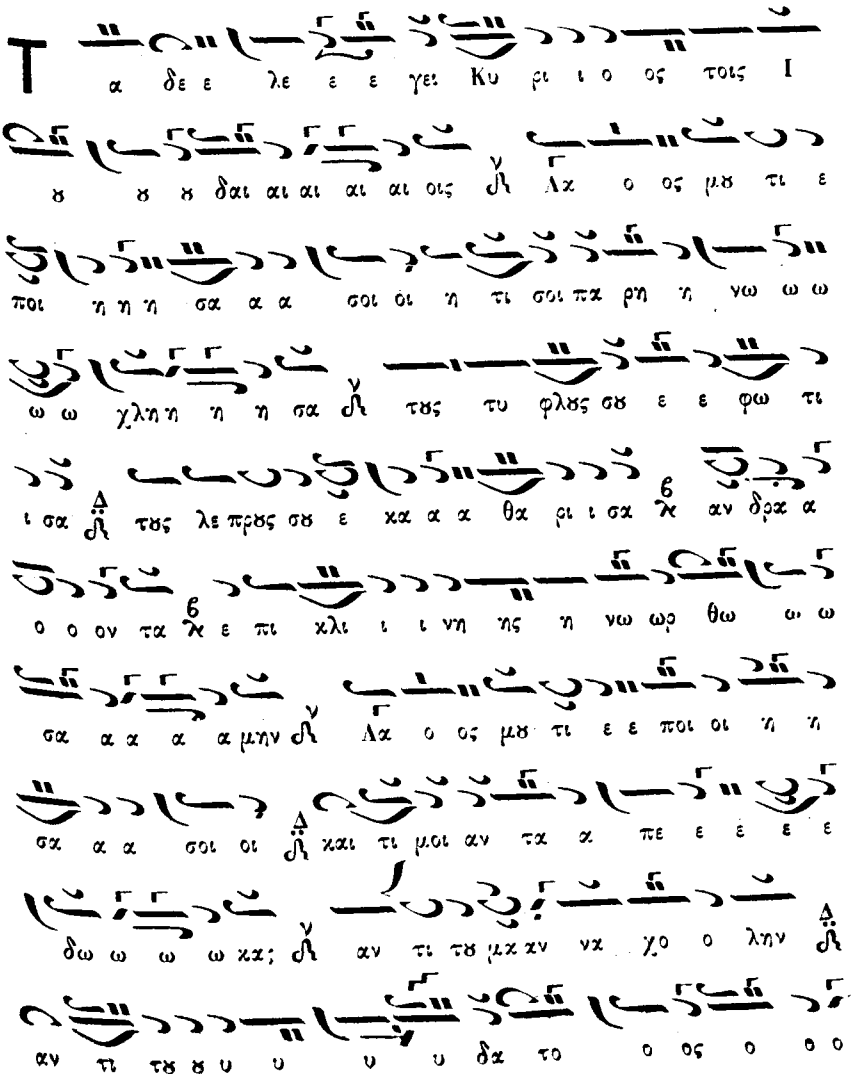 Τ α δε ε λε ε ε γει Κυ ρι ι ο ος τοις Ι
ȣ ȣ ȣ δαι αι αι αι αι οις Λα ο ος μȣ τι ε
ποι η η η σα α α σοι οι η τι σοι πα ρη η νω ω ω
ω ω χλη η η η σα τȣς τυ φλȣς σȣ ε ε φω τι
ι σα τȣς λε πρȣς σȣ ε κα α α θα ρι ι σα αν δρα α
ο ο ον τα ε πι κλι ι ι νη ης η νω ωρ θω ω ω
σα α α α α μην Λα ο ος μȣ τι ε ε ποι οι η η
σα α α σοι οι και τι μοι αν τα α πε ε ε ε ε
δω ω ω ω κας; αν τι τȣ μα αν να χο ο λην
αν τι τȣ ȣ υ υ υ υ δα το ο ος ο ο ο